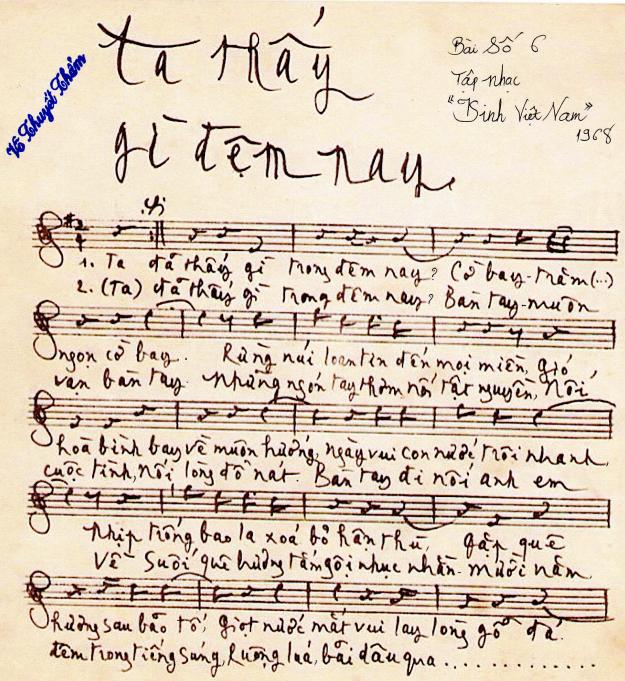 Ta thấy
gì đêm nay.
Võ Thuyết Thảm
Bài Số 6
Tập nhạc
"Kinh Việt Nam"
1968
1. Ta đã thấy gì trong đêm nay? Cờ bay-trăm (...)
2. (Ta) đã thấy gì trong đêm nay? Bàn tay-muôn
ngọn cờ bay. Rừng núi loan tin đến mọi miền, gió
vạn bàn tay. Những ngón tay thơm nối tật nguyền, Nối
hoà bình bay về muôn hướng, ngày vui con nước trôi nhanh,
cuộc tình, nối lòng đổ nát. Bàn tay đi nối anh em
nhịp trống bao la xoá bỏ hận thù, gặp quê
Về suối quê hương tắm gội nhục nhằn. Mười năm
hương sau bão tố, giọt nước mắt vui lay lòng gỗ đá.
đêm trong tiếng súng, Ruộng lúa, bãi dâu qua ..............